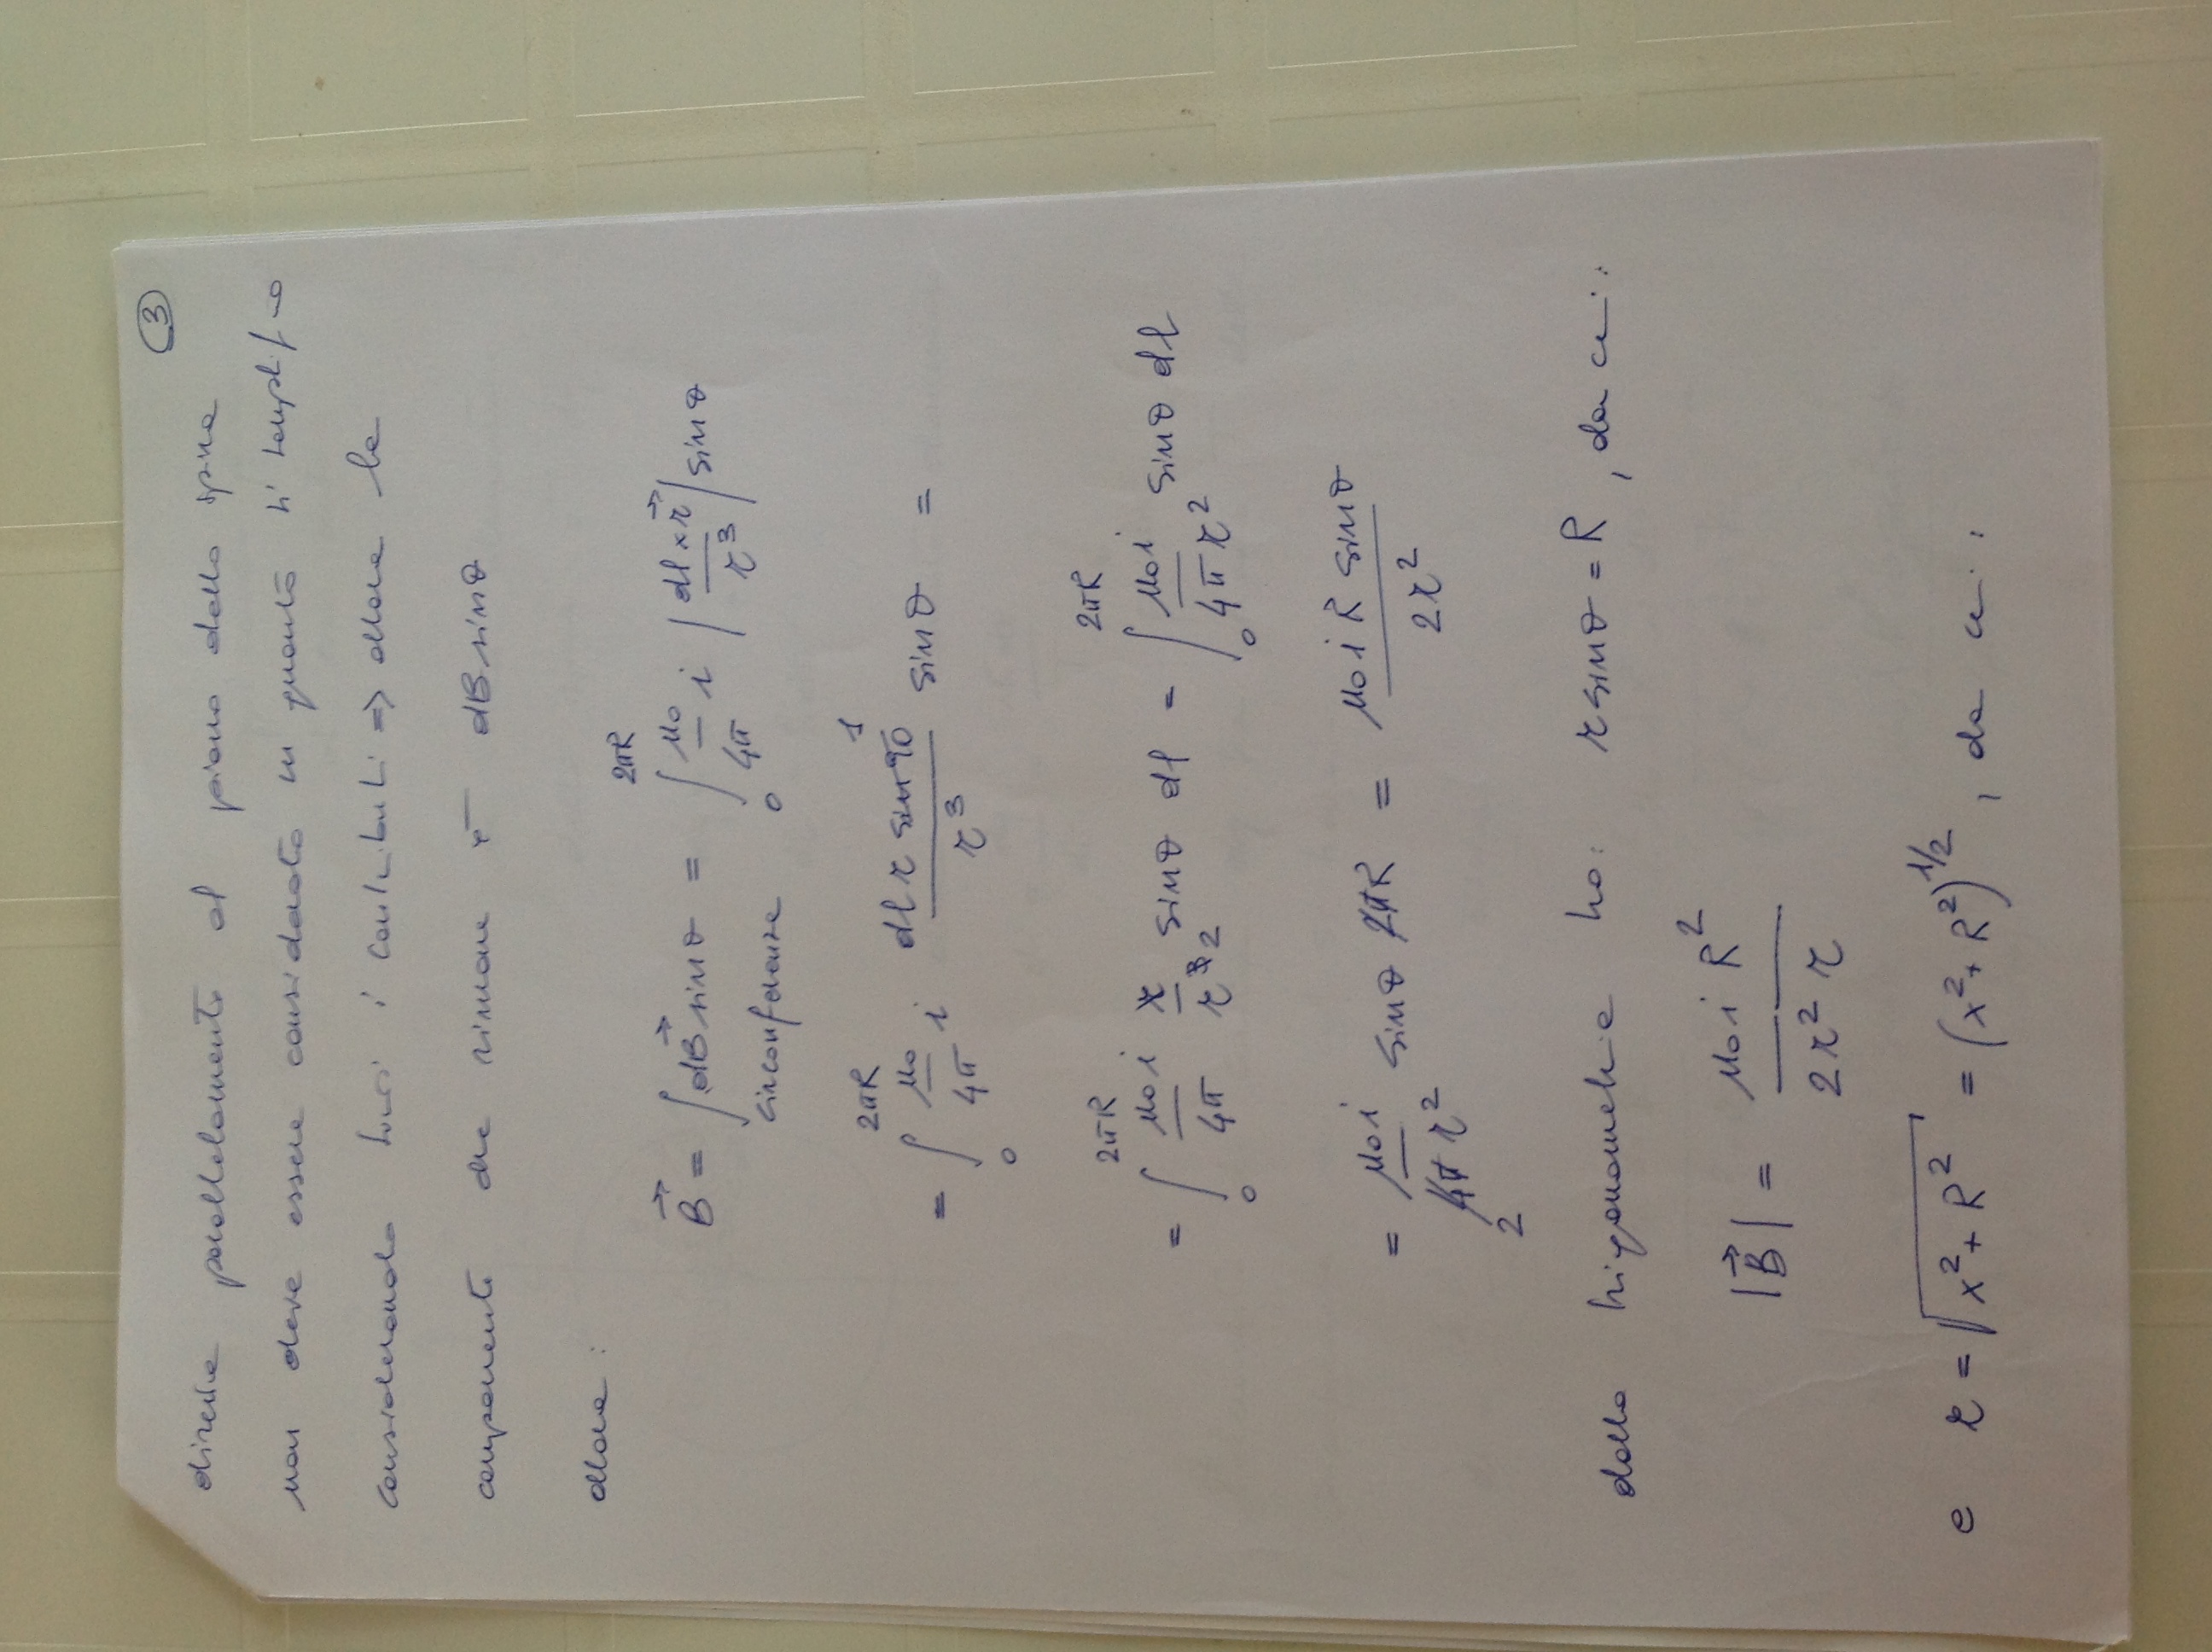 3
diretta parallelamente al piano della spira
non deve essere considerata in quanto si semplifica
considerando tutti i contributi => allora la
componente che rimane è dB sinθ
allora :
B⃗ = ∫circonferenza dB⃗ sinθ = ∫₀^2πR μ₀/4π i |dl × r⃗ / r³| sinθ
= ∫₀^2πR μ₀/4π i dl r sin90 1 / r³ sinθ =
= ∫₀^2πR μ₀i/4π r/r³ 2 sinθ dl = ∫₀^2πR μ₀i/4π r² sinθ dl
= μ₀i/4π r² 2 sinθ 2πR = μ₀i R sinθ / 2r²
dalla trigonometria ho: r sinθ = R , da cui :
|B⃗| = μ₀i R² / 2r² r
e r = √x² + R² = (x² + R²)^1/2 , da cui :